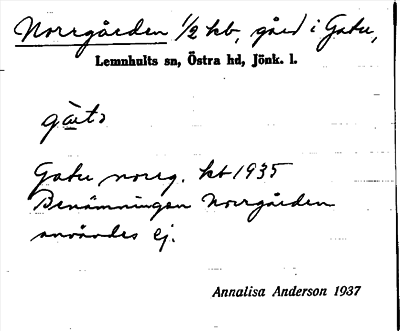 Norrgården 1/2 hb, gård i Gatu,
Lemnhults sn, Östra hd, Jönk. l.
Gatu norrg. kb 1935
Benämningen Norrgården
användes ej.
Annalisa Anderson 1937